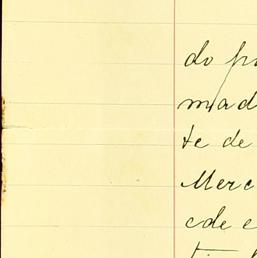 do pr
mad
te de
Merc
cde e